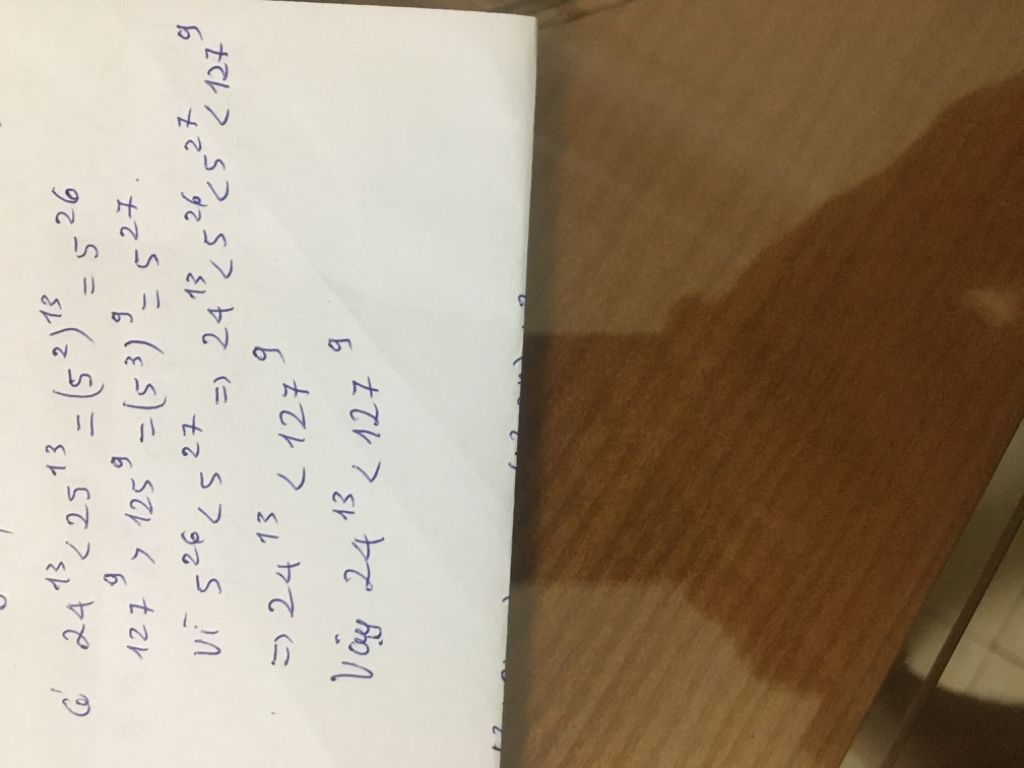 Có 24¹³ < 25¹³ = (5²)¹³ = 5²⁶
127⁹ > 125⁹ = (5³)⁹ = 5²⁷.
Vì 5²⁶ < 5²⁷ => 24¹³ < 5²⁶ < 5²⁷ < 127⁹
=> 24¹³ < 127⁹
Vậy 24¹³ < 127⁹